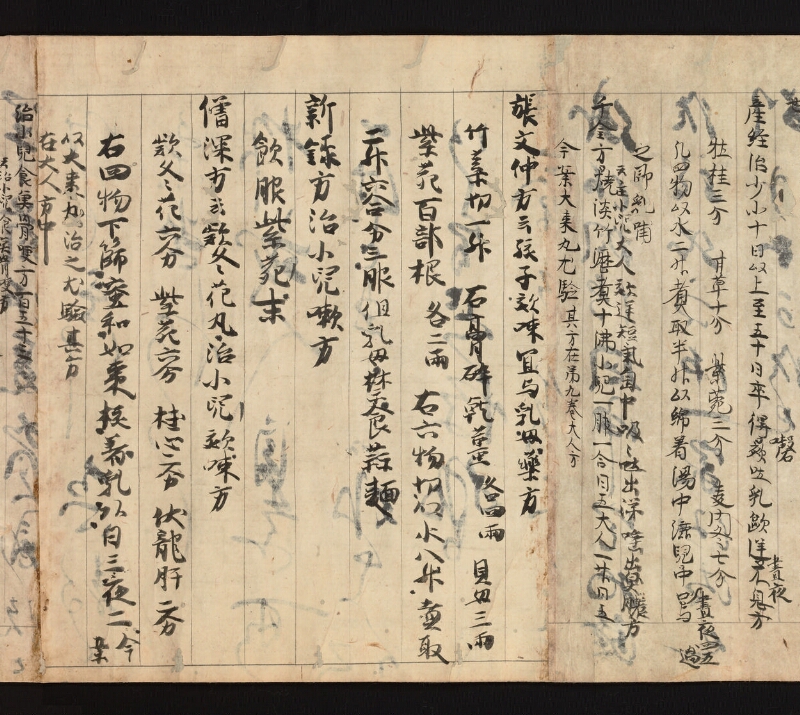 産経治少小十日以上至五十日卒得謦咳乳歐逆晝夜不息方
牡桂三分 甘草十分 紫菀三分 麦門冬七分
凡四物以水二升煮取半升以綿着湯中漉兒口中晝夜四五過
之節乳哺
又云小兒大人咳逆短氣胸中吸々出涕唾出臭膿方
千金方燒淡竹瀝煮十沸小兒一服一合日五大人一升日五
今案大棗丸尤驗其方在第九卷大人方
張文仲方云孩子欬嗽宜与乳母藥方
竹葉切一升 石膏碎 乾薑各四兩 貝母三兩
紫菀百部根各二兩 右六物切以水八升煮取
二升六合分三服但乳母禁食蒜麺
新録方治小兒嗽方
飲服紫菀末
僧深方云欵冬花丸治小兒欬嗽方
欵冬花六分 紫菀六分 桂心二分 伏龍肝二分
右四物下篩蜜和如棗核著乳以日三夜二今案
以大棗丸治之尤驗其方
在大人方中
治小兒食魚骨哽方百五十